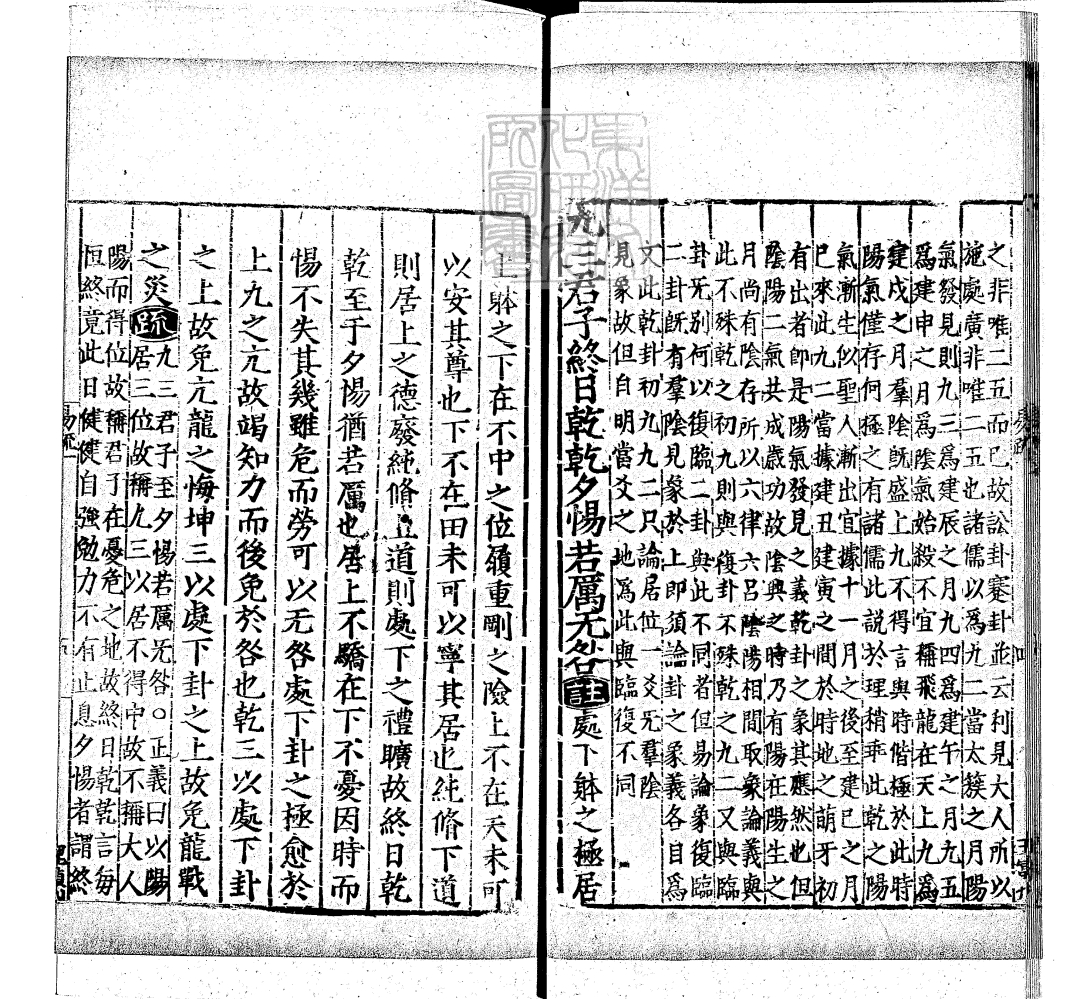 之非唯二五而已故訟卦蹇卦並云利見大人所以
施處廣非唯二五也諸儒以爲九二當太簇之月陽
氣發見則九三爲建辰之月九四爲建午之月九五
爲建申之月爲陰氣始殺不宜稱飛龍在天上九爲
建戌之月羣陰旣盛上九不得言與時偕極於此時
陽氣僅存何極之有諸儒此說於理稍乖此乾之陽
氣漸生似聖人漸出宜據十一月之後至建巳之月
巳來此九二當據建丑建寅之間於時地之萌牙初
有出者即是陽氣發見之義乾卦之象其應然也但
陰陽二氣共成歲功故陰興之時乃有陽在陽生之
月尚有陰存所以六律六呂陰陽相間取象論義與
此不殊乾之初九則與復卦不殊乾之九二又與臨
卦旡別何以復臨二卦與此不同者但易論象復臨
二卦旣有羣陰見象於上即須論卦之象義各自爲
文此乾卦初九九二只論居位一爻旡羣陰
見象故但自明當爻之地爲此與臨復不同
九三君子終日乾乾夕惕若厲无咎註處下躰之極居
上躰之下在不中之位履重剛之險上不在天未可
以安其尊也下不在田未可以寧其居也純脩下道
則居上之德廢純脩上道則處下之禮曠故終日乾
乾至于夕惕猶若厲也居上不驕在下不憂因時而
惕不失其幾雖危而勞可以无咎處下卦之極愈於
上九之亢故竭知力而後免於咎也乾三以處下卦
之上故免亢龍之悔坤三以處下卦之上故免龍戰
之災疏九三君子至夕惕若厲旡咎○正義曰以陽
居三位故稱九三以居不得中故不稱大人
陽而得位故稱君子在憂危之地故終日乾乾言每
恒終竟此日健健自強勉力不有止息夕惕者謂終
易疏一